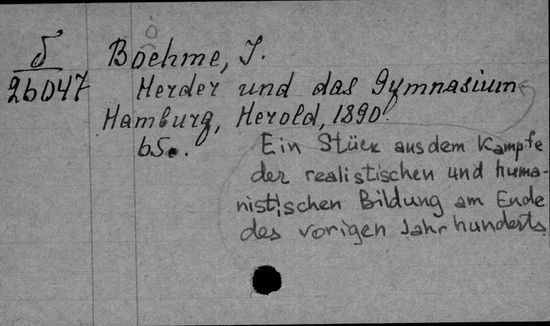 δ
26047
Boehme, J.
Herder und das Gymnasium
Hamburg, Herold, 1890.
65.
Ein Stück aus dem Kampfe
der realistischen und huma-
nistischen Bildung am Ende
des vorigen Jahrhunderts